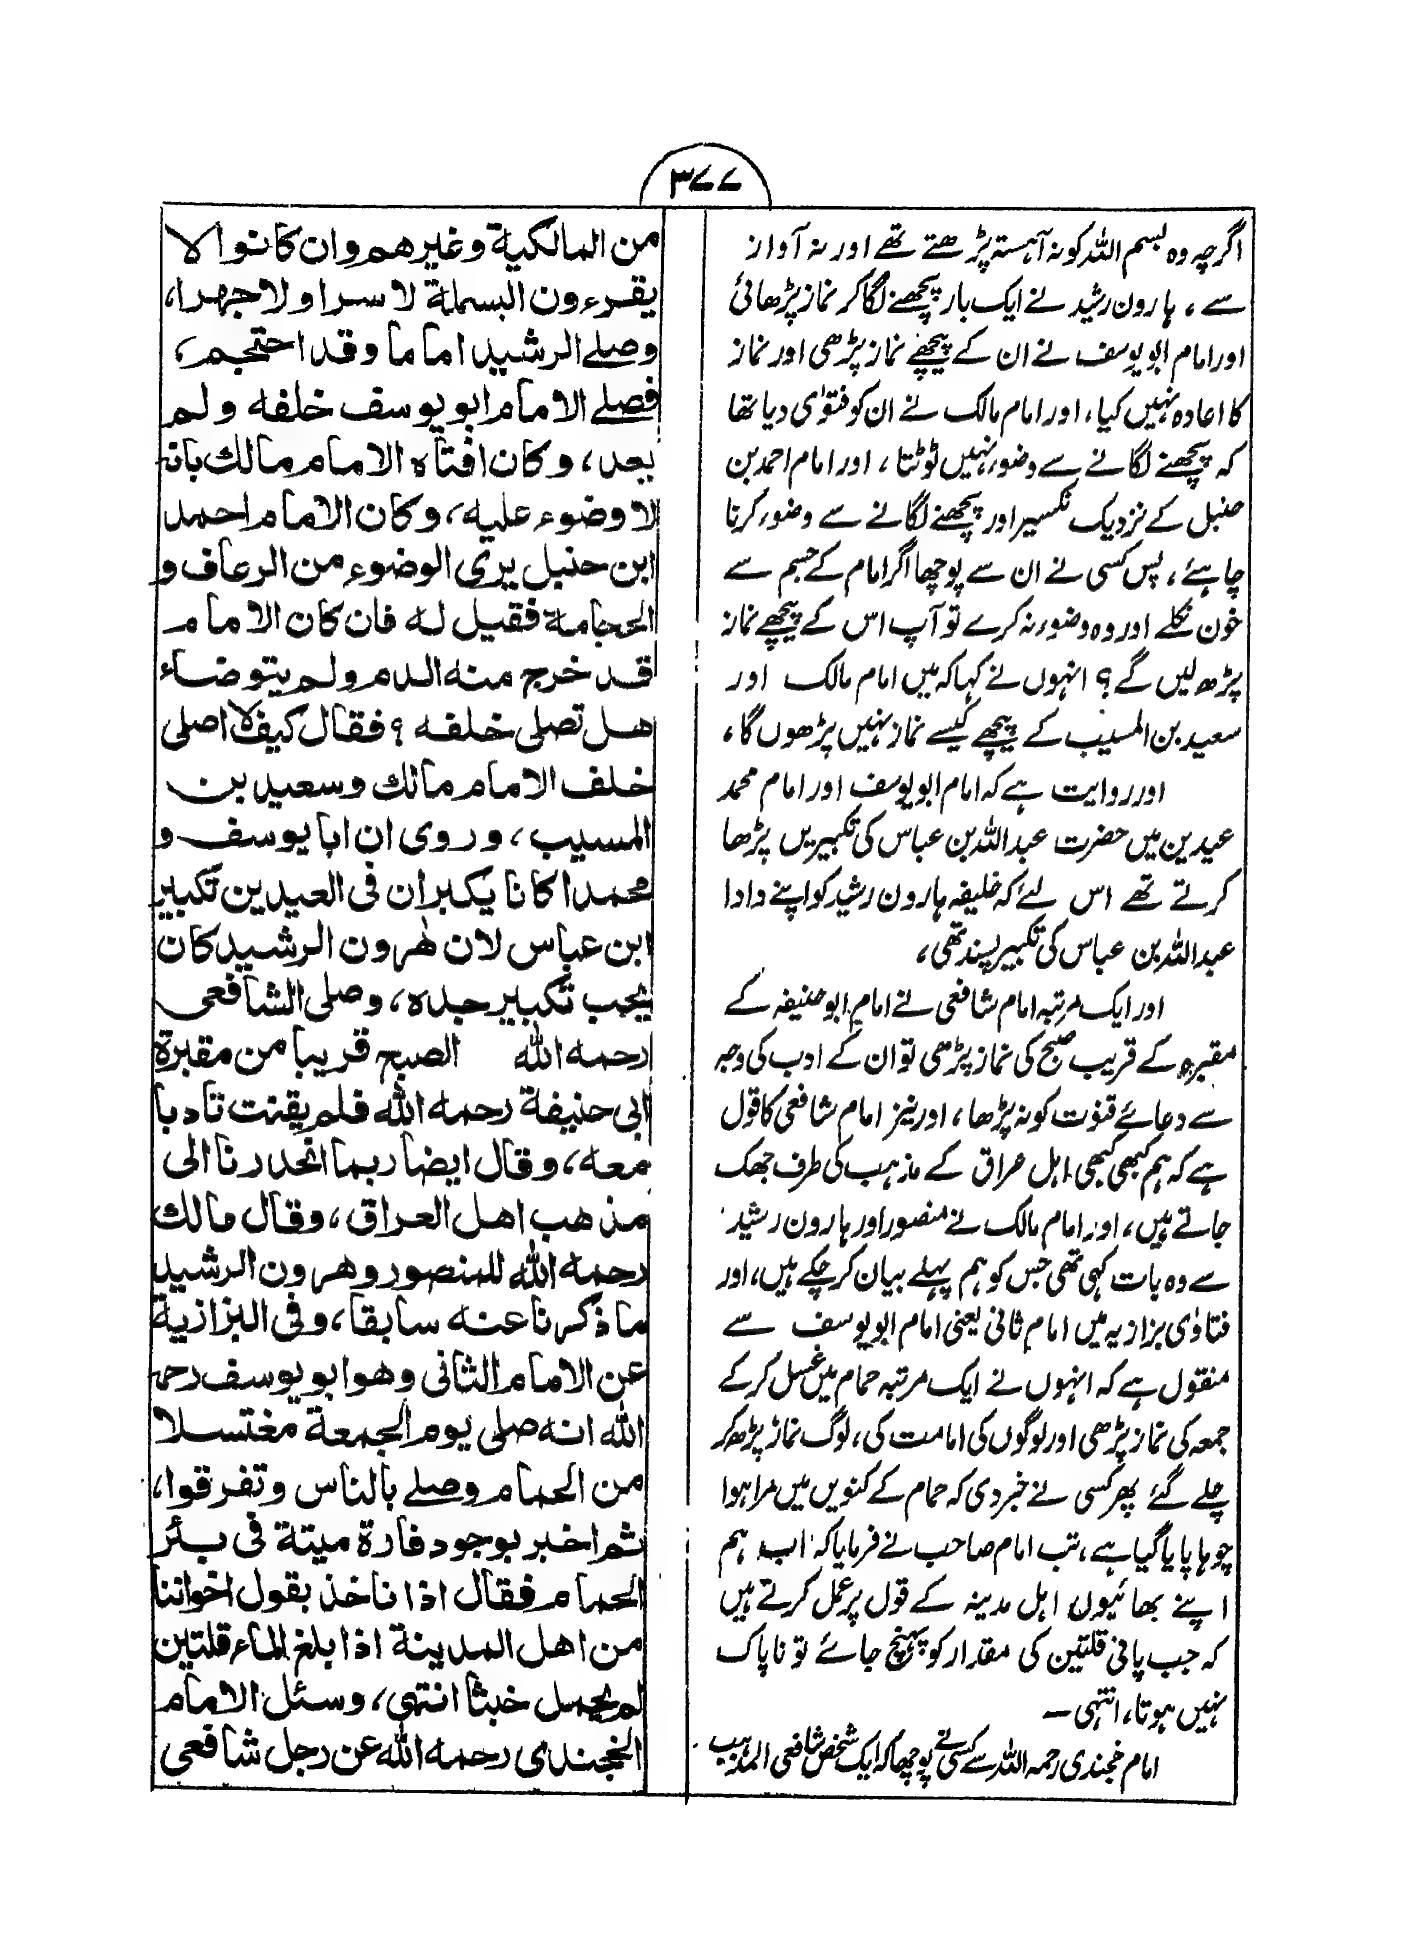 ۳۷۷
اگرچہ وہ بسم اللہ کو نہ آہستہ پڑھتے تھے اور نہ آواز
سے، ہارون رشید نے ایک بار پچھنے لگا کر نماز پڑھائی
اور امام ابو یوسف نے ان کے پیچھے نماز پڑھی اور نماز
کا اعادہ نہیں کیا، اور امام مالک نے ان کو فتوٰی دیا تھا
کہ پچھنے لگانے سے وضوء نہیں ٹوٹتا، اور امام احمد بن
حنبل کے نزدیک نکسیر اور پچھنے لگانے سے وضوء کرنا
چاہئے، پس کسی نے ان سے پوچھا اگر امام کے جسم سے
خون نکلے اور وہ وضوء نہ کرے تو آپ اس کے پیچھے نماز
پڑھ لیں گے؟ انہوں نے کہا کہ میں امام مالک اور
سعید بن المسیب کے پیچھے کیسے نماز نہیں پڑھوں گا،
اور روایت ہے کہ امام ابو یوسف اور امام محمد
عیدین میں حضرت عبداللہ بن عباس کی تکبیریں پڑھا
کرتے تھے اس لئے کہ خلیفہ ہارون رشید کو اپنے دادا
عبداللہ بن عباس کی تکبیر پسند تھی،
اور ایک مرتبہ امام شافعی نے امام ابو حنیفہ کے
مقبرہ کے قریب صبح کی نماز پڑھی تو ان کے ادب کی وجہ
سے دعائے قنوت کو نہ پڑھا، اور نیز امام شافعی کا قول
ہے کہ ہم کبھی کبھی اہل عراق کے مذہب کی طرف جھک
جاتے ہیں، اور امام مالک نے منصور اور ہارون رشید
سے وہ بات کہی تھی جس کو ہم پہلے بیان کر چکے ہیں، اور
فتاوٰی بزازیہ میں امام ثانی یعنی امام ابو یوسف سے
منقول ہے کہ انہوں نے ایک مرتبہ حمام میں غسل کر کے
جمعہ کی نماز پڑھی اور لوگوں کی امامت کی، لوگ نماز پڑھ کر
چلے گئے پھر کسی نے خبر دی کہ حمام کے کنویں میں مرا ہوا
چوہا پایا گیا ہے، تب امام صاحب نے فرمایا کہ اب ہم
اپنے بھائیوں اہل مدینہ کے قول پر عمل کرتے ہیں
کہ جب پانی قلتین کی مقدار کو پہنچ جائے تو ناپاک
نہیں ہوتا، انتہی ـ
امام خجندی رحمہ اللہ سے کسی نے پوچھا کہ ایک شخص شافعی المذہب
من المالكية وغيرهم وان كانوا لا
يقرءون البسملة لا سرا ولا جهرا،
وصلے الرشيد اماما وقد احتجم،
فصلے الامام ابو يوسف خلفه ولم
يعد، وكان افتاه الامام مالك بانه
لا وضوء عليه، وكان الامام احمد
ابن حنبل يرى الوضوء من الرعاف و
الحجامة فقيل له فان كان الامام
قد خرج منه الدم ولم يتوضاء
هل تصلى خلفه ؟ فقال كيف لا اصلى
خلف الامام مالك وسعيد بن
المسيب، وروى ان ابا يوسف و
محمدا كانا يكبران فى العيدين تكبير
ابن عباس لان هٰرون الرشيد كان
يحب تكبير جده، وصلى الشافعى
رحمه الله الصبح قريبا من مقبرة
ابى حنيفة رحمه الله فلم يقنت تادبا
معه، وقال ايضا ربما انحدرنا الى
مذهب اهل العراق، وقال مالك
رحمه الله للمنصور وهرون الرشيد
ما ذكرنا عنه سابقا، وفى البزازية
عن الامام الثانى وهو ابو يوسف رحمه
الله انه صلى يوم الجمعة مغتسلا
من الحمام وصلے بالناس وتفرقوا،
ثم اخبر بوجود فارة ميتة فى بئر
الحمام فقال اذا ناخذ بقول اخواننا
من اهل المدينة اذا بلغ الماء قلتين
لم يحمل خبثا انتهى، وسئل الامام
الخجندى رحمه الله عن رجل شافعى